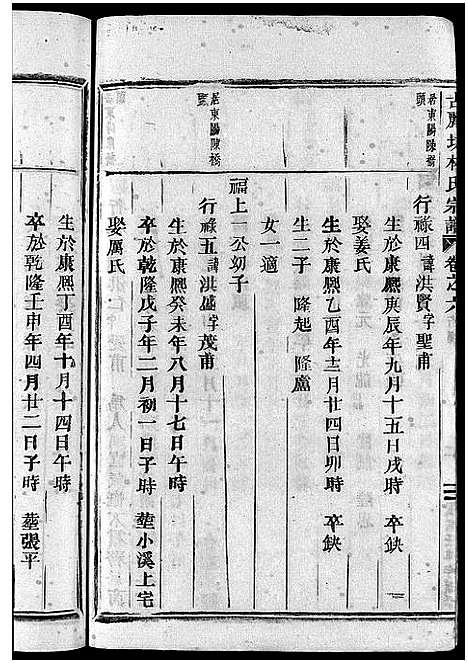 林氏宗譜 卷之六
居東陽陳橋
頭
行祿四 諱洪賢字聖甫
生於康熙庚辰年九月十五日戌時 卒缺
娶姜氏
生於康熙乙酉年十二月廿四日卯時 卒缺
生二子 隆起 隆盧
女一適
福上一公幼子
居東陽陳橋
頭
行祿五 諱洪盛字茂甫
生於康熙癸未年八月十七日午時
卒於乾隆戊子年二月初一日子時 塟小溪上宅
娶厲氏
生於康熙丁酉年十月十四日午時
卒於乾隆壬申年四月廿二日子時 塟張平